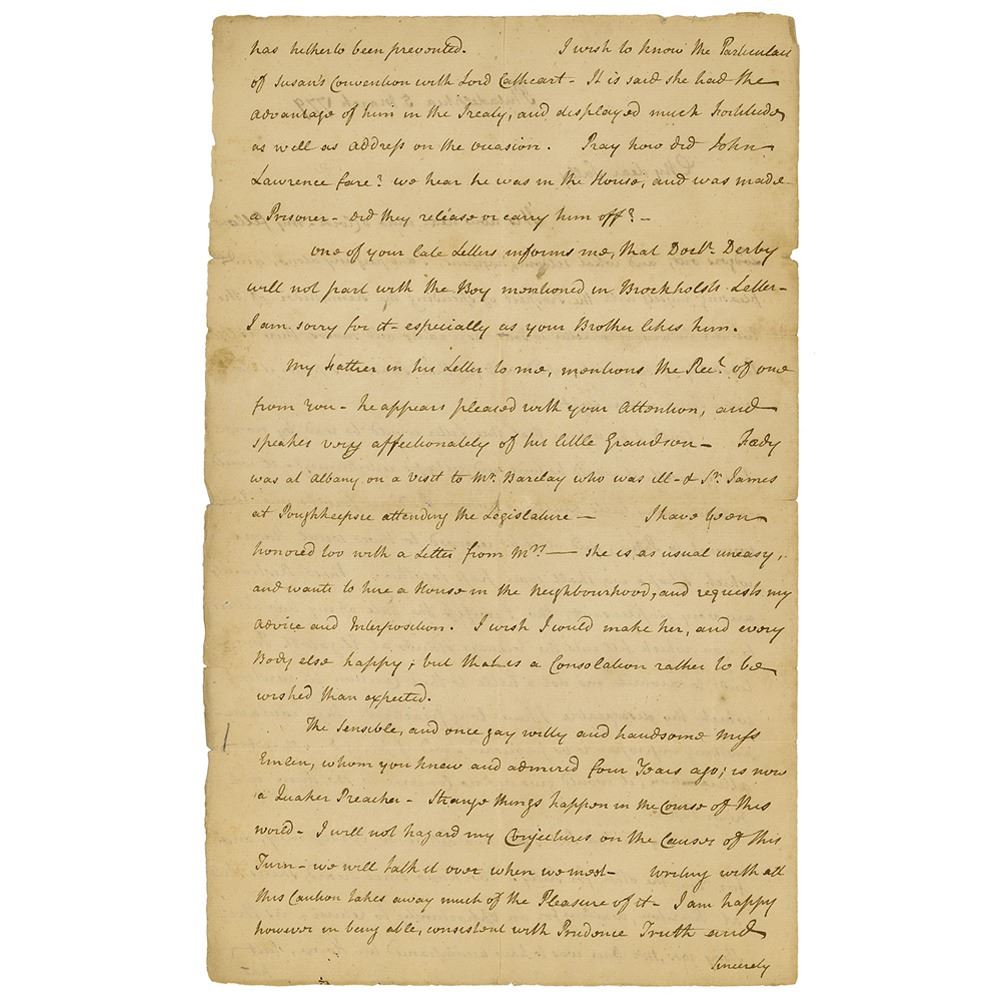 has hitherto been prevented. I wish to know the Particulars
of Susan's Convention with Lord Cathcart - It is said she had the
advantage of him in the Treaty, and displayed much Fortitude
as well as address on the occasion. Pray how did John
Lawrence fare? we hear he was in the House, and was made
a Prisoner - did they release or carry him off? -
one of your late Letters informs me, that Doctr. Derby
will not part with the Boy mentioned in Brockholsts Letter -
I am sorry for it - especially as your Brother likes him.
My Father in his Letter to me, mentions the Rect. of one
from You - he appears pleased with your Attention, and
speaks very affectionately of his little Grandson - Fædy
was at Albany on a visit to Mr. Barclay who was ill - & Sr. James
at Poughkeepsie attending the Legislature - I have been
honored too with a Letter from Mrs — she is as usual uneasy,
and wants to hire a House in the Neighbourhood, and requests my
advice and Interposition. I wish I could make her, and every
Body else happy; but that is a Consolation rather to be
wished than expected.
The Sensible, and once gay witty and handsome Miss
Emlen, whom you knew and admired four Years ago; is now
a Quaker Preacher - Strange things happen in the Course of this
world - I will not hazard my Conjectures on the Causes of this
Turn - we will talk it over when we meet - writing with all
this Caution takes away much of the Pleasure of it - I am happy
however in being able, consistent with Prudence Truth and
Sincerely